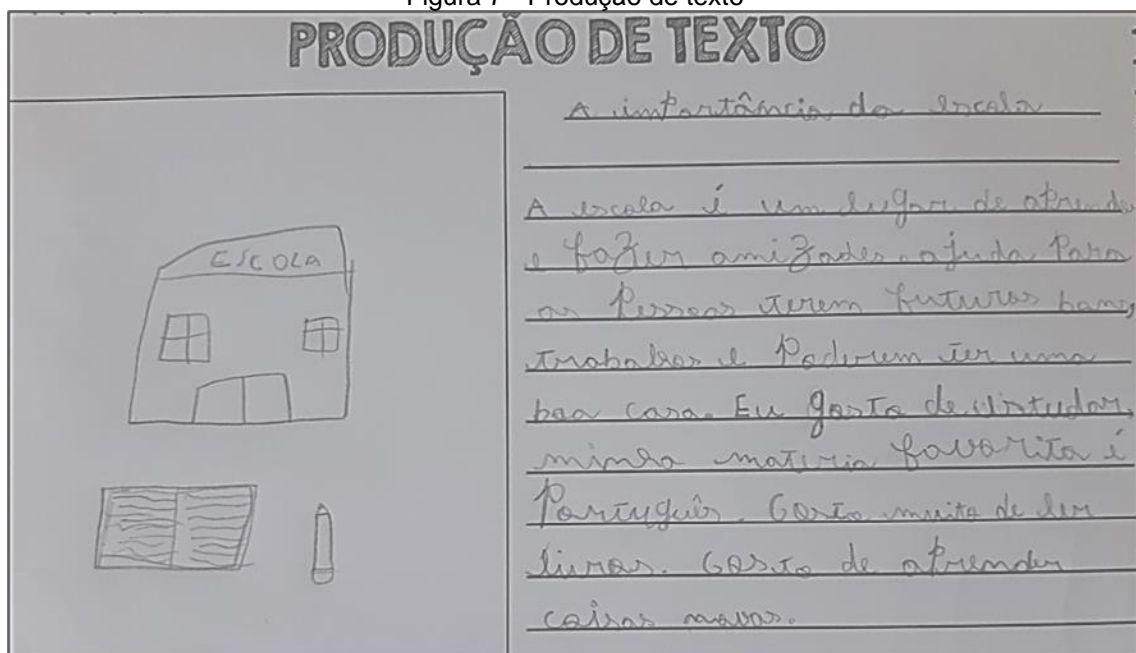 Figura 7 - Produção de texto
PRODUÇÃO DE TEXTO
A importância da escola
ESCOLA
A escola é um lugar de aprende
e fazer amizades. ajuda Para
as Pessoas terem futuros bons,
trabalhos e Poderem ter uma
boa casa. Eu gosto de estudar,
minha materia favorita é
Português. Gosto muito de ler
livros. Gosto de aprender
coisas novas.